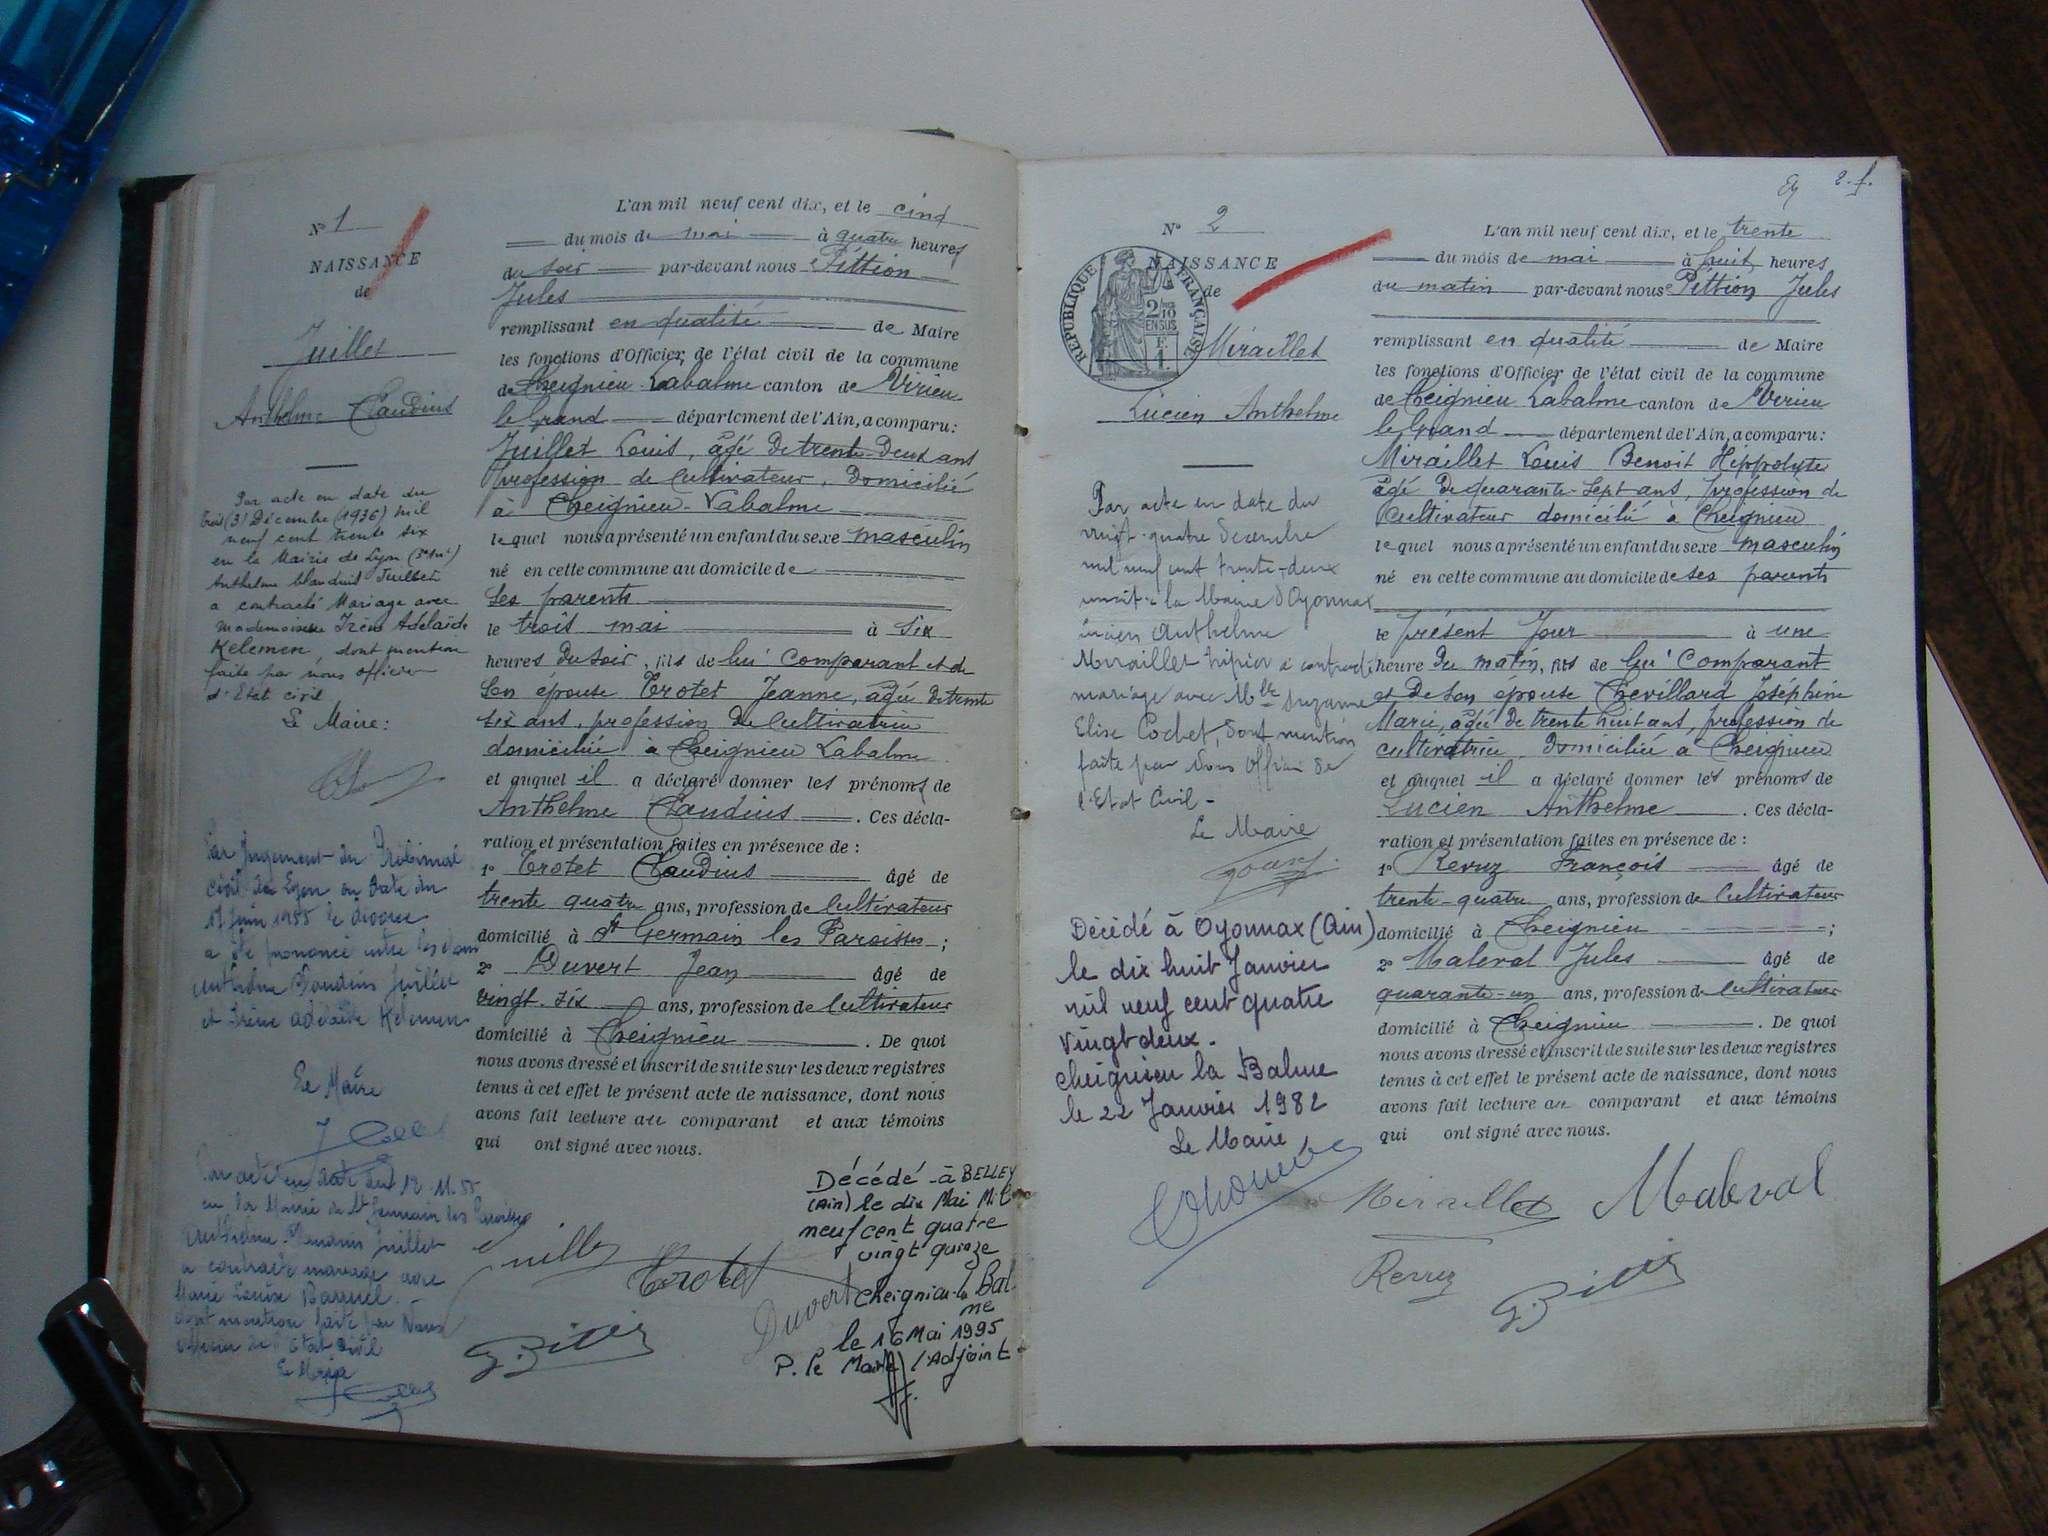 N° 1
NAISSANCE
de
Juillet
Anthelme Claudius
Par acte en date du
trois (3) Décembre (1936) mil
neuf cent trente six
en la Mairie de Lyon
Anthelme Claudius Juillet
a contracté Mariage avec
Mademoiselle Irène Adélaïde
Kelemen, dont mention
faite par nous officier
d'Etat civil
Le Maire:
Par jugement du Tribunal
civil de Lyon en date du
17 Juin 1955 le divorce
a été prononcé entre les
Anthelme Claudius Juillet
et Irène Adelaïde Kelemen
Le Maire
Par acte en date du 12.11.55
en la Mairie de St Germain les Paroisses
Anthelme Claudius Juillet
a contracté mariage avec
Marie Louise
dont mention faite par Nous
officier de l'Etat civil
Le Maire
L'an mil neuf cent dix, et le cinq
du mois de mai à quatre heures
du soir par-devant nous Pittion
Jules
remplissant en qualité de Maire
les fonctions d'Officier de l'état civil de la commune
de Cheignieu Labalme canton de Virieu
le Grand département de l'Ain, a comparu:
Juillet Louis, âgé de trente-deux ans
profession de cultivateur, domicilié
à Cheignieu-Labalme
lequel nous a présenté un enfant du sexe masculin
né en cette commune au domicile de
ses parents
le trois mai à six
heures du soir, fils de lui comparant et de
son épouse Trotet Jeanne, âgée de trente
six ans, profession de cultivatrice
domiciliée à Cheignieu Labalme
et auquel il a déclaré donner les prénoms de
Anthelme Claudius. Ces décla-
ration et présentation faites en présence de :
1° Trotet Claudius âgé de
trente quatre ans, profession de cultivateur
domicilié à St Germain les Paroisses ;
2° Duvert Jean âgé de
vingt-six ans, profession de cultivateur
domicilié à Cheignieu. De quoi
nous avons dressé et inscrit de suite sur les deux registres
tenus à cet effet le présent acte de naissance, dont nous
avons fait lecture au comparant et aux témoins
qui ont signé avec nous.
Décédé à BELLEY
(Ain) le dix Mai Mil
neuf cent quatre
vingt quinze
Cheignieu-la Bal
me
le 16 Mai 1995
P. le Maire l'Adjoint
Juillet
Trotet
Duvert
2. f.
N° 2
NAISSANCE
de
RÉPUBLIQUE FRANÇAISE
2/10
EN SUS
F.
1.
Miraillet
Lucien Anthelme
Par acte en date du
vingt-quatre décembre
mil neuf cent trente-deux
inscrit à la Mairie d'Oyonnax
Lucien Anthelme
Miraillet a contracté
mariage avec Mlle Suzanne
Elise Cochet, dont mention
faite par Nous Officier de
l'Etat Civil -
Le Maire
Décédé à Oyonnax (Ain)
le dix huit Janvier
mil neuf cent quatre
vingt deux.
Cheignieu la Balme
le 22 Janvier 1982
Le Maire
L'an mil neuf cent dix, et le trente
du mois de mai à huit heures
du matin par-devant nous Pittion Jules
remplissant en qualité de Maire
les fonctions d'Officier de l'état civil de la commune
de Cheignieu Labalme canton de Virieu
le Grand département de l'Ain, a comparu:
Miraillet Louis Benoit Hippolyte
âgé de quarante-sept ans, profession de
cultivateur domicilié à Cheignieu
lequel nous a présenté un enfant du sexe masculin
né en cette commune au domicile de ses parents
le présent jour à une
heure du matin, fils de lui comparant
et de son épouse Chevillard Joséphine
Marie, âgée de trente huit ans, profession de
cultivatrice domiciliée à Cheignieu
et auquel il a déclaré donner les prénoms de
Lucien Anthelme. Ces décla-
ration et présentation faites en présence de :
1° Revuz François âgé de
trente-quatre ans, profession de cultivateur
domicilié à Cheignieu ;
2° Maleval Jules âgé de
quarante-un ans, profession de cultivateur
domicilié à Cheignieu. De quoi
nous avons dressé et inscrit de suite sur les deux registres
tenus à cet effet le présent acte de naissance, dont nous
avons fait lecture au comparant et aux témoins
qui ont signé avec nous.
Miraillet Maleval
Revuz